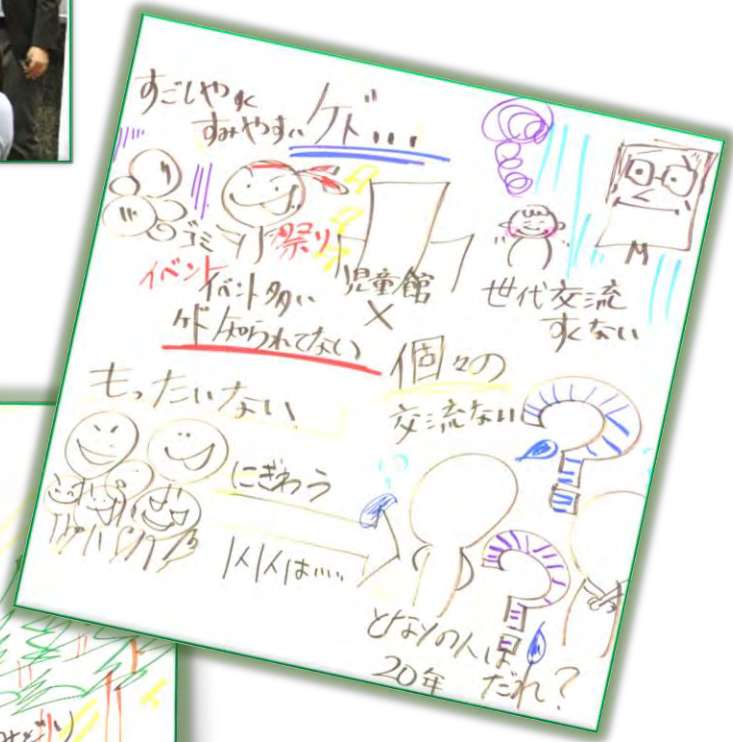 すごしやすく
すみやすい ケド...
ゴミ
祭り
イベント
イベント多い
ケド知られてない
児童館
×
世代交流
すくない
もったいない
個々の
交流ない
にぎわう
1人1人は....
となりの人は
20年 だれ?